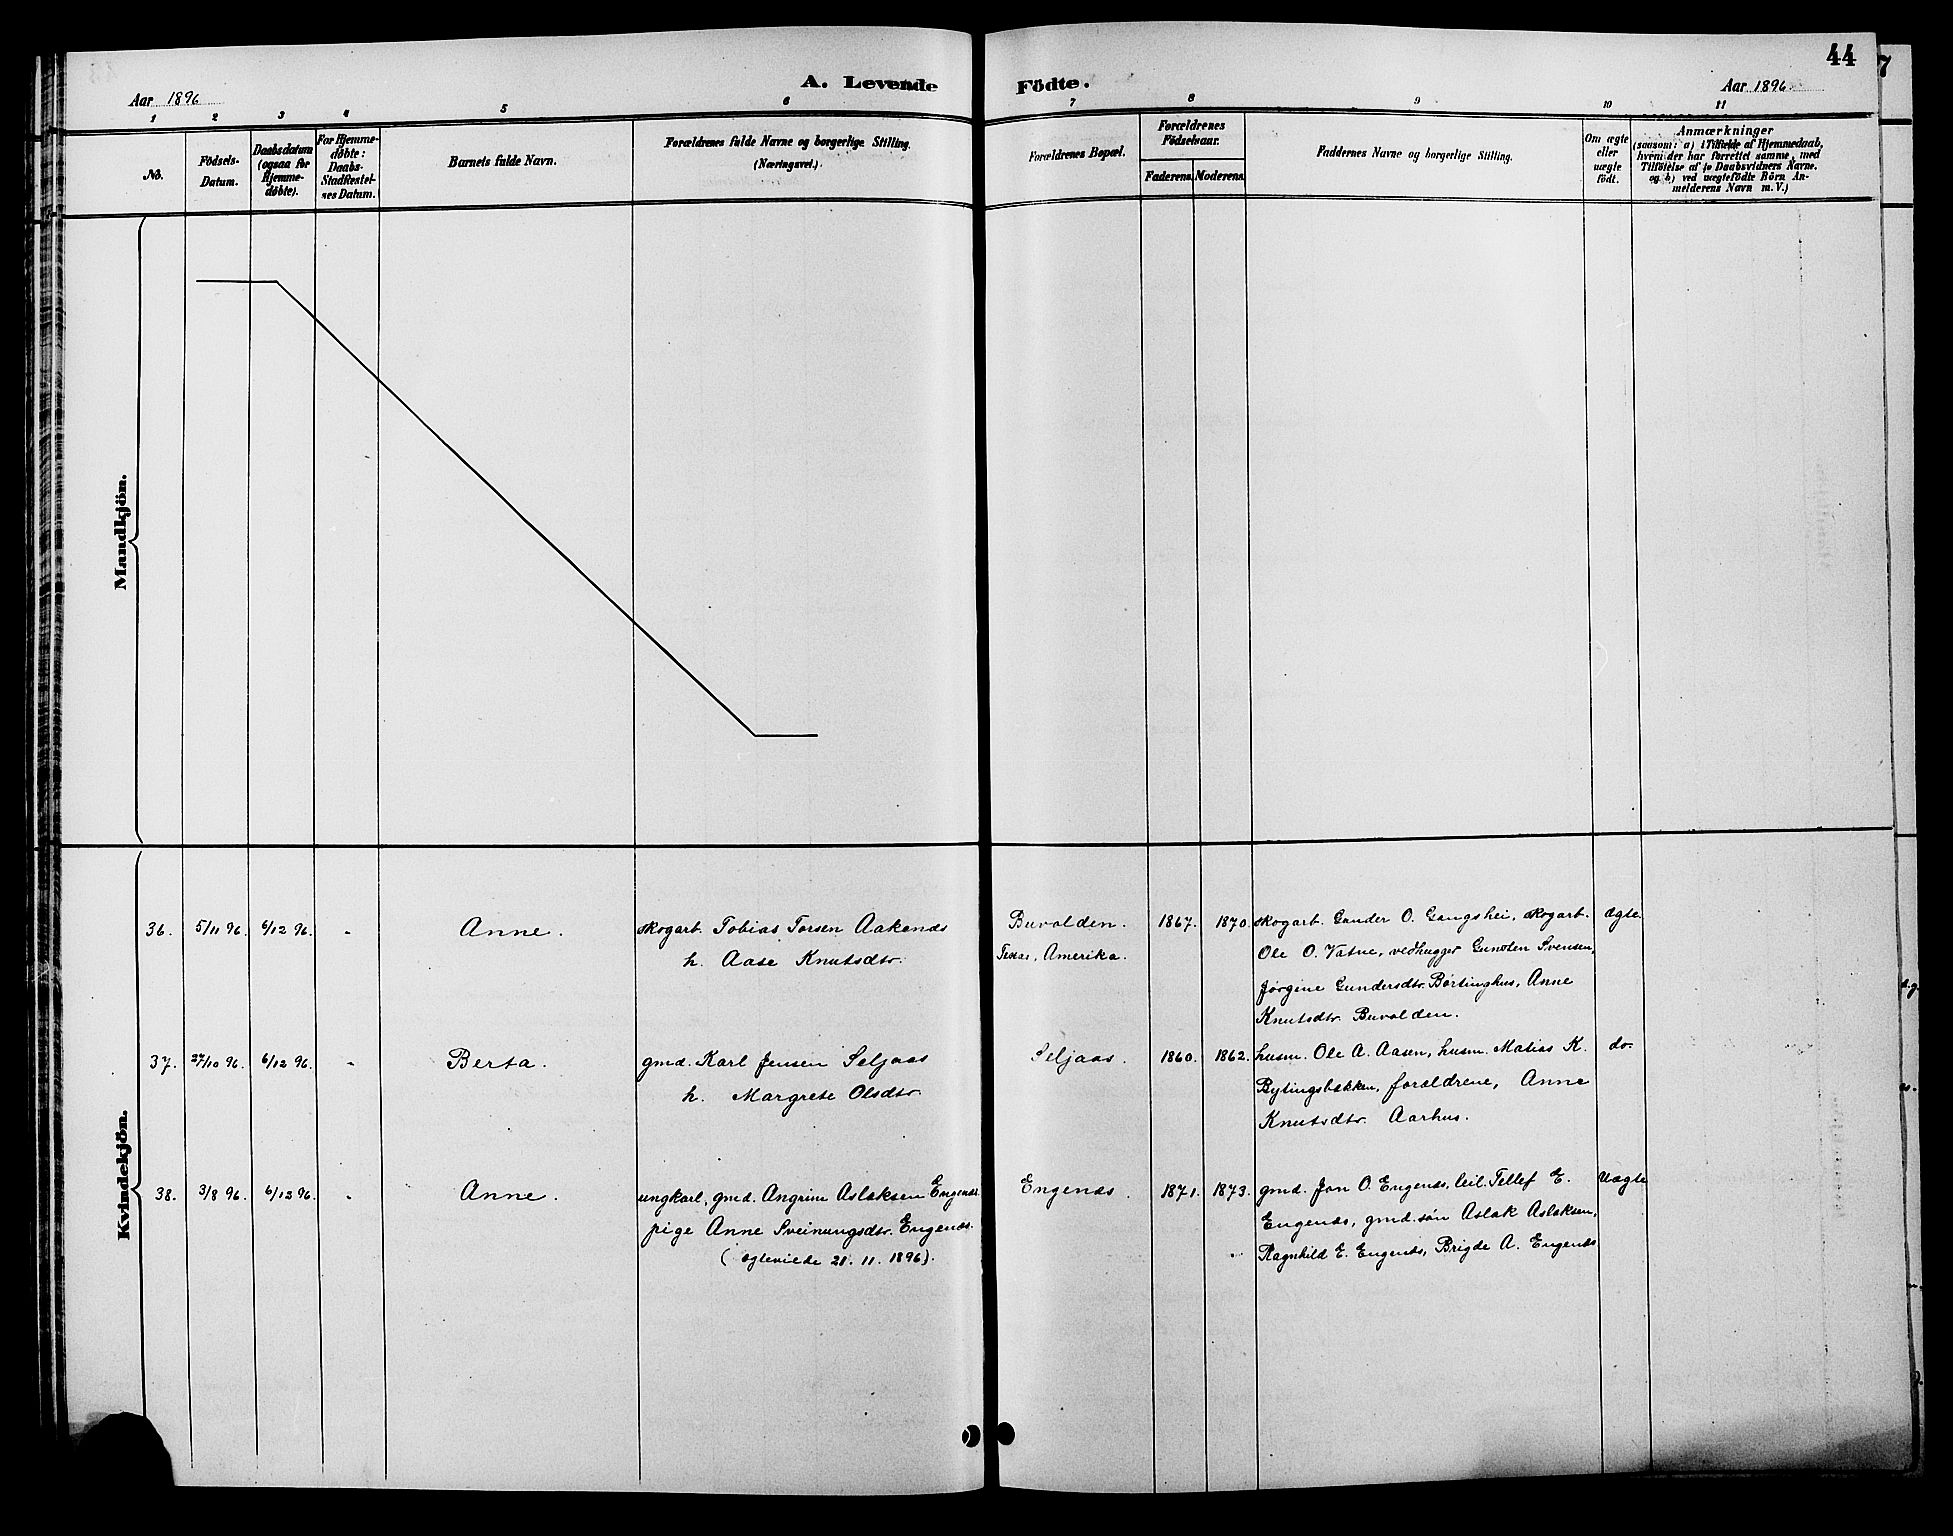 44
7
A. Levende Födte.
Aar 1896
Aar 1896
1 2 3 4 5 6 7 8 9 10 11
No.
Födsels-
Datum.
Daabsdatum
(ogsaa for
Hjemme-
döbte).
For Hjemme-
döbte:
Daabs-
Stadfæstel-
ses Datum.
Barnets fulde Navn.
Forældrenes fulde Navne og borgerlige Stilling.
(Næringsvei.)
Forældrenes Bopæl.
Forældrenes
Födselsaar.
Faderens.
Moderens.
Faddernes Navne og borgerlige Stilling.
Om ægte
eller
uægte
födt.
Anmærkninger
(saasom: a) i Tilfælde af Hjemmedaab,
hvem der har forrettet samme, med
Tilföielse af to Daabsvidners Navne.
og b) ved uægtefödte Börn An-
melderens Navn m.V.)
Mandkjön.
Kvindekjön.
36. 5/11 96. 6/12 96. - Anne. skogarb. Tobias Torsen Aakenæs
h. Aase Knutsdtr.
Buvolden.
Texas, Amerika.
1867. 1870.
skogarb. Gunder O. Gangshei, skogarb.
Ole O. Vatne, vedhugger Gunsten Svensen,
Jørgine Gundersdtr. Børtinghus, Anne
Knutsdtr. Buvolden.
Ægte.
37. 27/10 96. 6/12 96. - Berta. gmd. Karl Jensen Seljaas
h. Margrete Olsdtr.
Seljaas.
1860. 1862.
husm. Ole A. Aasen, husm. Matias K.
Bytingsbakken, forældrene, Anne
Knutsdtr. Aarhus.
do.
38. 3/8 96. 6/12 96. - Anne. ungkarl, gmd. Angrim Aslaksen Engenæs
pige Anne Sveinungsdtr. Engenæs.
(ægteviede 21. 11. 1896).
Engenæs.
1871. 1873.
gmd. Jon O. Engenæs, leil. Tellef E.
Engenæs, gmd. søn Aslak Aslaksen,
Ragnhild E. Engenæs, Brigde A. Engenæs
Uægte